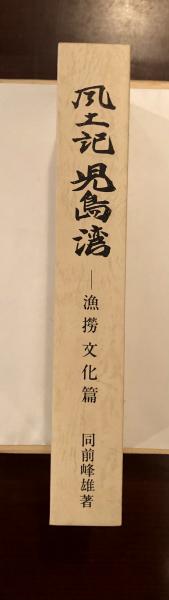 風土記 児島湾
―漁撈文化篇
同前峰雄著